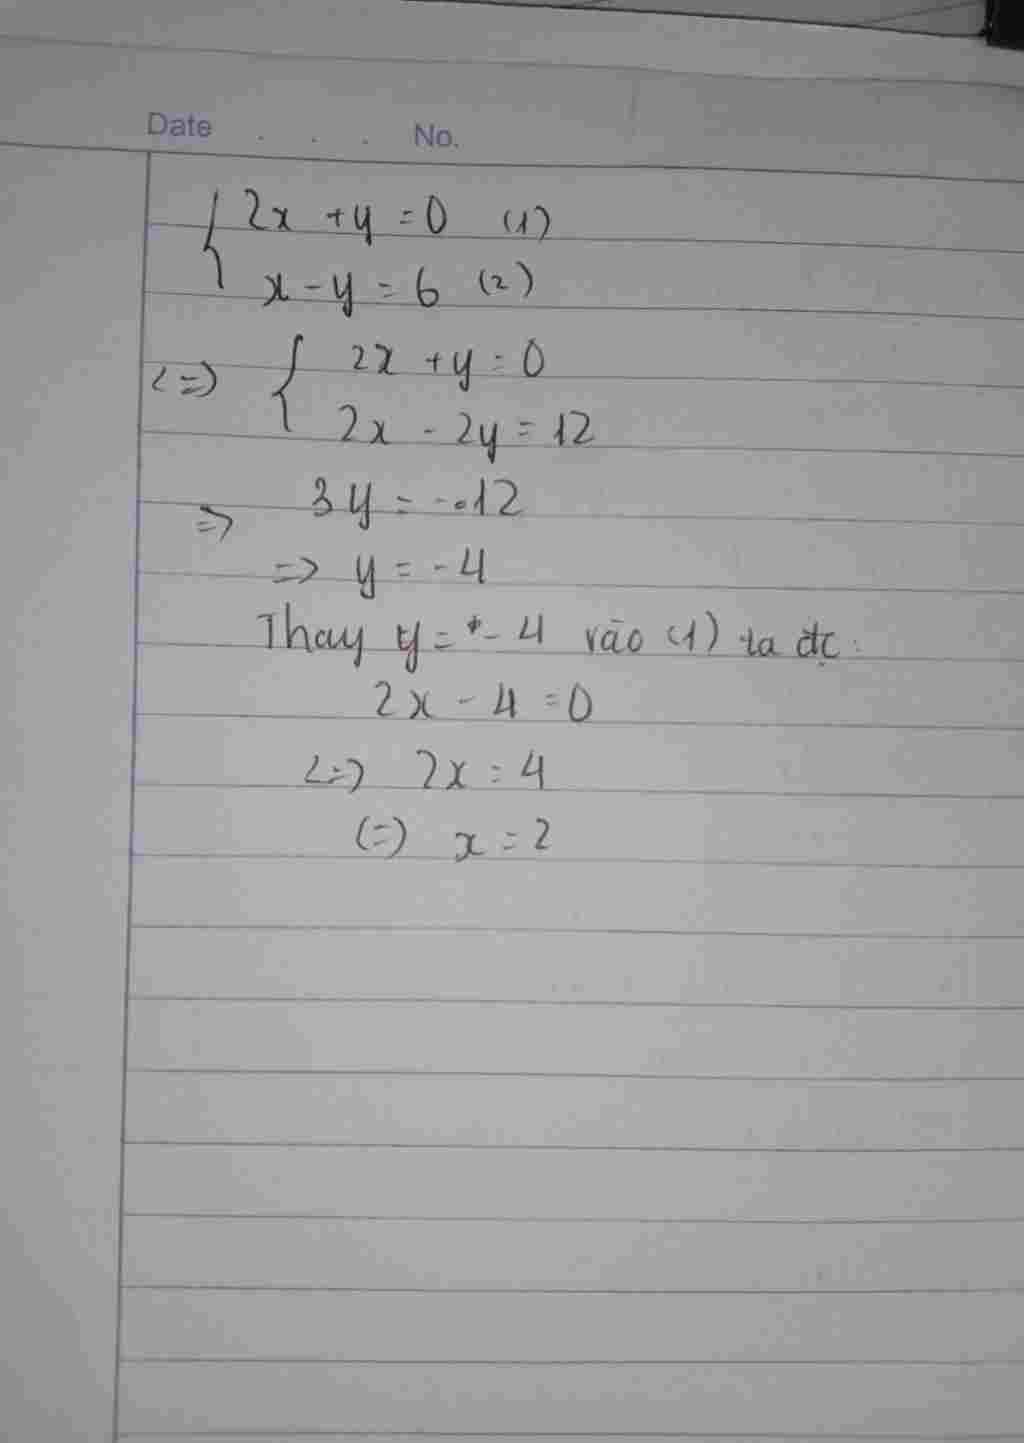 Date . . . No.
{ 2x + y = 0 (1)
x - y = 6 (2)
<=> { 2x + y = 0
2x - 2y = 12
=> 3y = -12
=> y = -4
Thay y = -4 vào (1) ta đc:
2x - 4 = 0
<=> 2x = 4
(=) x = 2